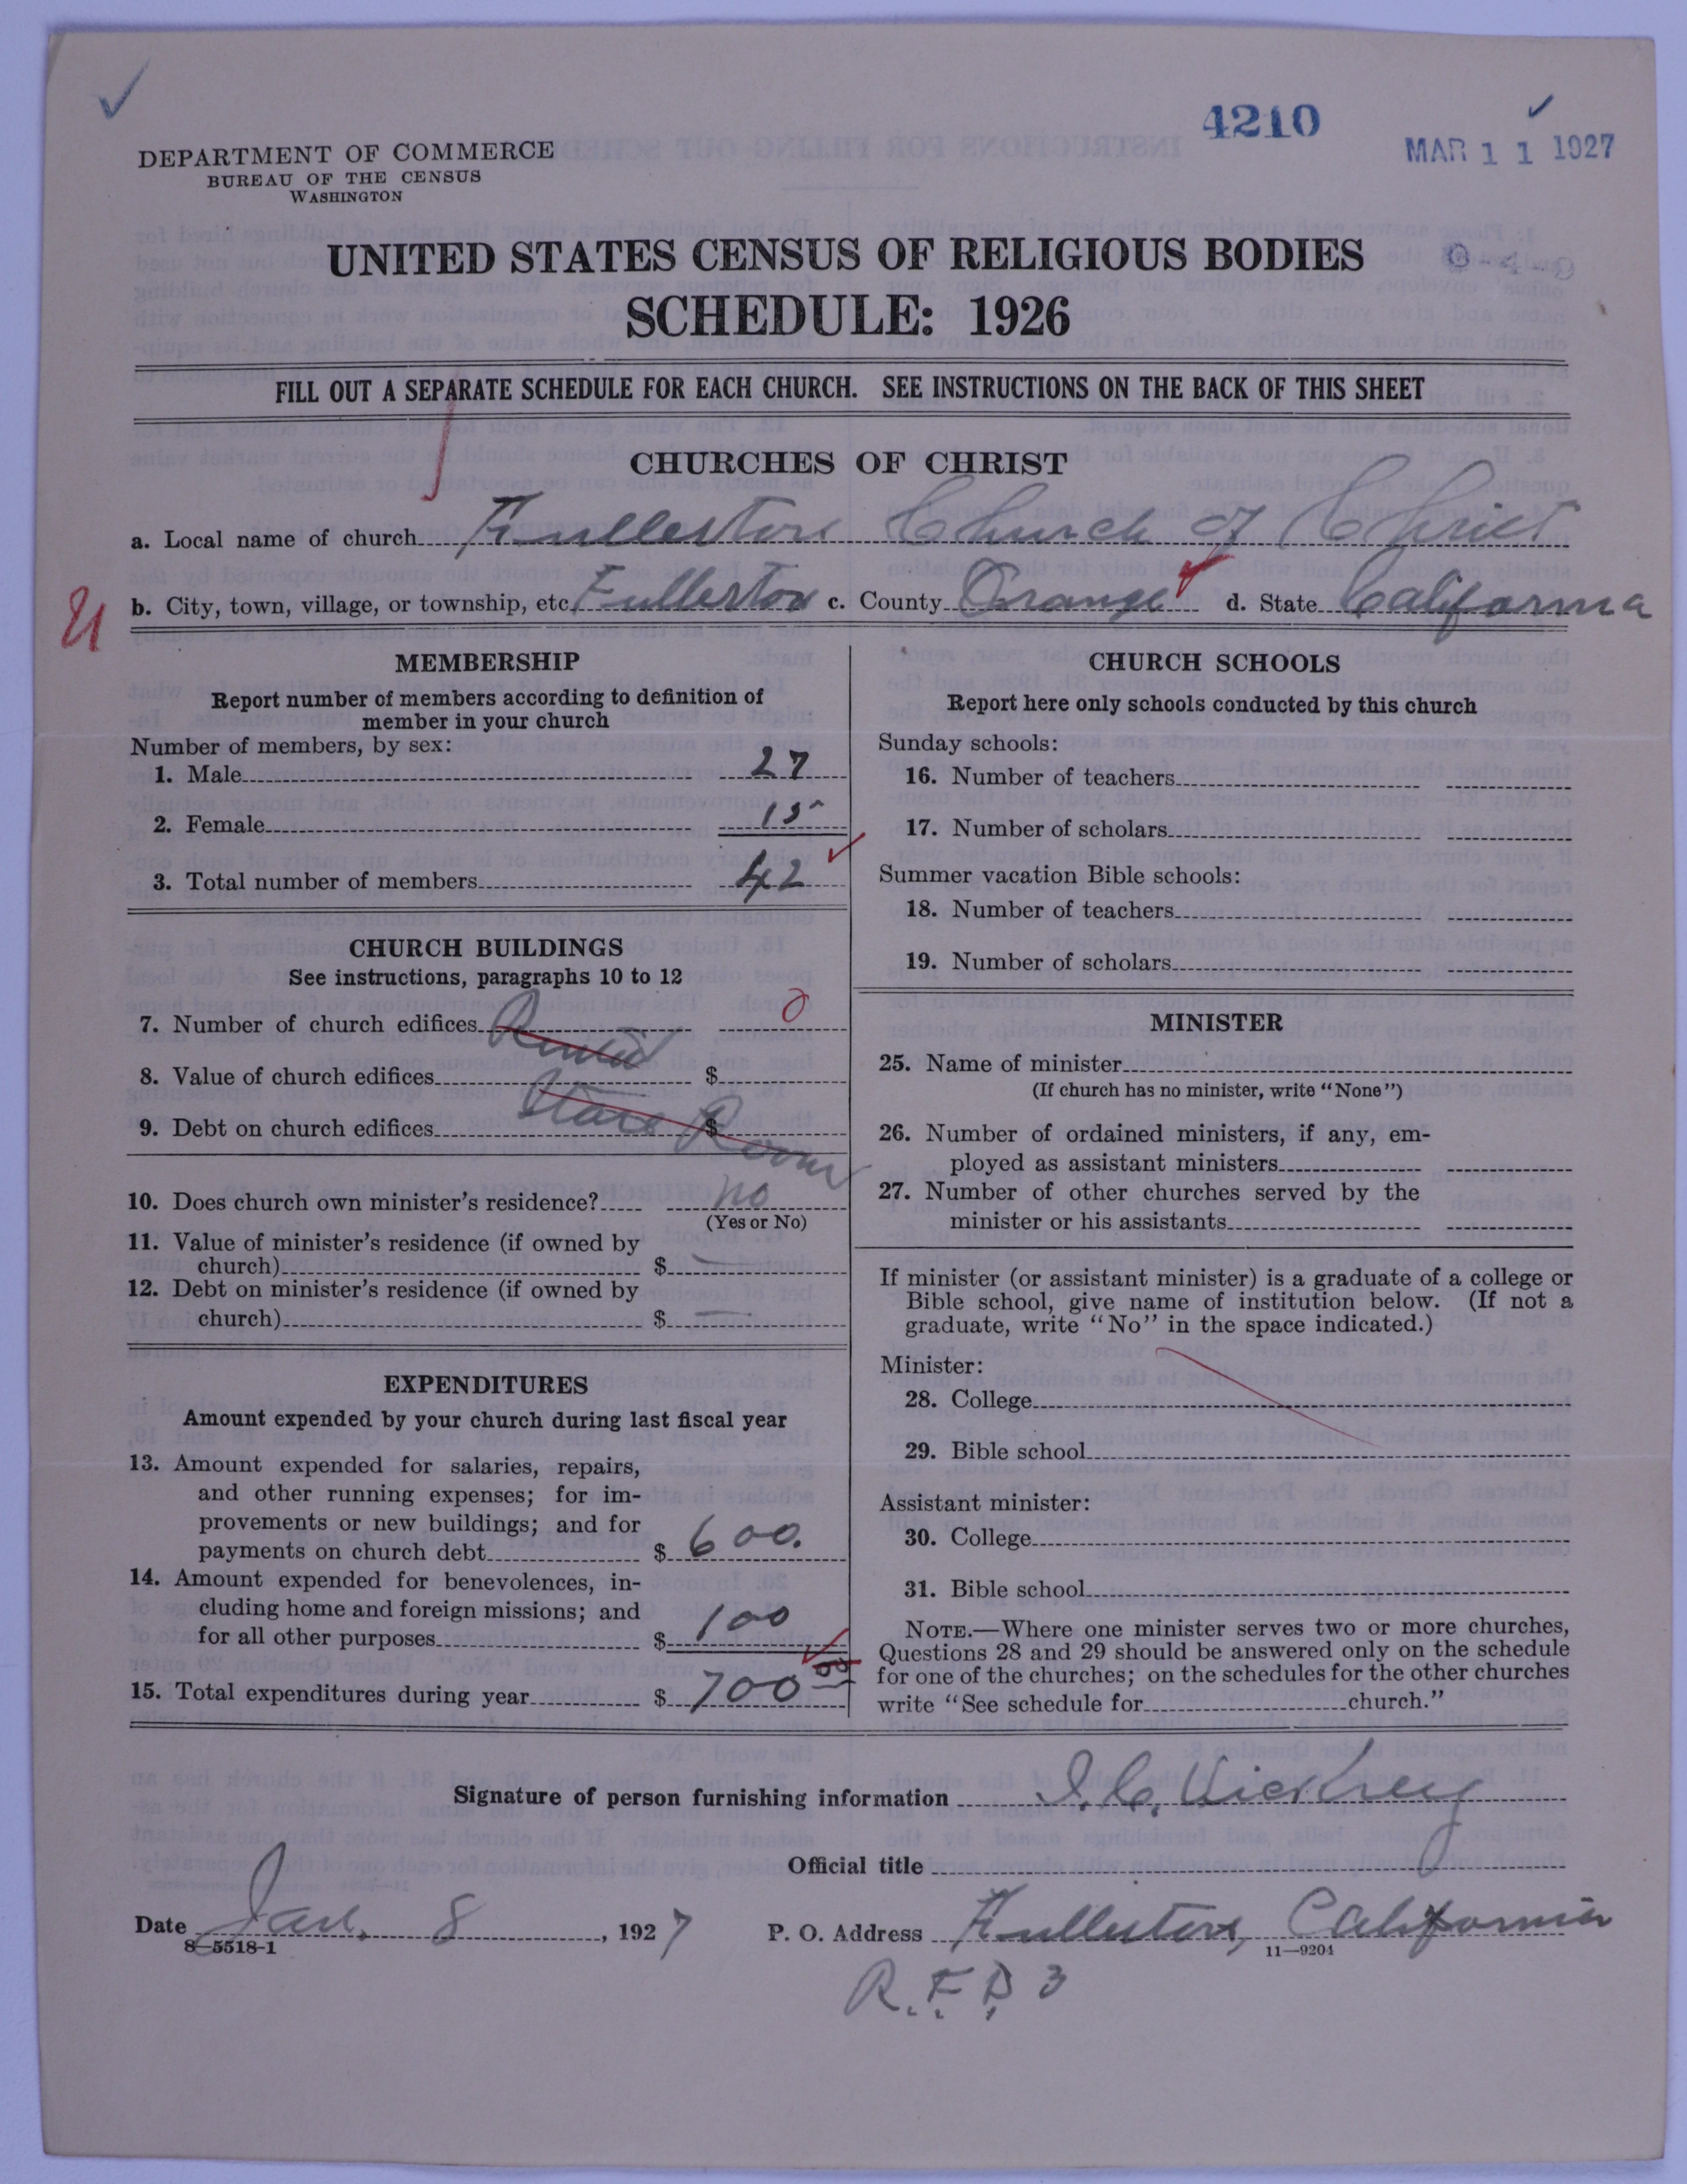 4210
MAR 11 1927
DEPARTMENT OF COMMERCE
BUREAU OF THE CENSUS
WASHINGTON
UNITED STATES CENSUS OF RELIGIOUS BODIES
SCHEDULE: 1926
FILL OUT A SEPARATE SCHEDULE FOR EACH CHURCH. SEE INSTRUCTIONS ON THE BACK OF THIS SHEET
CHURCHES OF CHRIST
a. Local name of church Fullerton Church of Christ
b. City, town, village, or township, etc. Fullerton c. County Orange d. State California
MEMBERSHIP
Report number of members according to definition of
member in your church
Number of members, by sex:
1. Male 27
2. Female 15
3. Total number of members 42
CHURCH BUILDINGS
See instructions, paragraphs 10 to 12
7. Number of church edifices Rented 0
8. Value of church edifices $
9. Debt on church edifices Store Room $
10. Does church own minister's residence? no
(Yes or No)
11. Value of minister's residence (if owned by
church) $ —
12. Debt on minister's residence (if owned by
church) $ —
EXPENDITURES
Amount expended by your church during last fiscal year
13. Amount expended for salaries, repairs,
and other running expenses; for im-
provements or new buildings; and for
payments on church debt $ 600.
14. Amount expended for benevolences, in-
cluding home and foreign missions; and
for all other purposes $ 100
15. Total expenditures during year $ 700 00
CHURCH SCHOOLS
Report here only schools conducted by this church
Sunday schools:
16. Number of teachers
17. Number of scholars
Summer vacation Bible schools:
18. Number of teachers
19. Number of scholars
MINISTER
25. Name of minister
(If church has no minister, write "None")
26. Number of ordained ministers, if any, em-
ployed as assistant ministers
27. Number of other churches served by the
minister or his assistants
If minister (or assistant minister) is a graduate of a college or
Bible school, give name of institution below. (If not a
graduate, write "No" in the space indicated.)
Minister:
28. College
29. Bible school
Assistant minister:
30. College
31. Bible school
NOTE.—Where one minister serves two or more churches,
Questions 28 and 29 should be answered only on the schedule
for one of the churches; on the schedules for the other churches
write "See schedule for church."
Signature of person furnishing information
Official title
Date Jan. 8, 1927 P. O. Address Fullerton, California
8—5518-1 11—9204
R.F.D 3